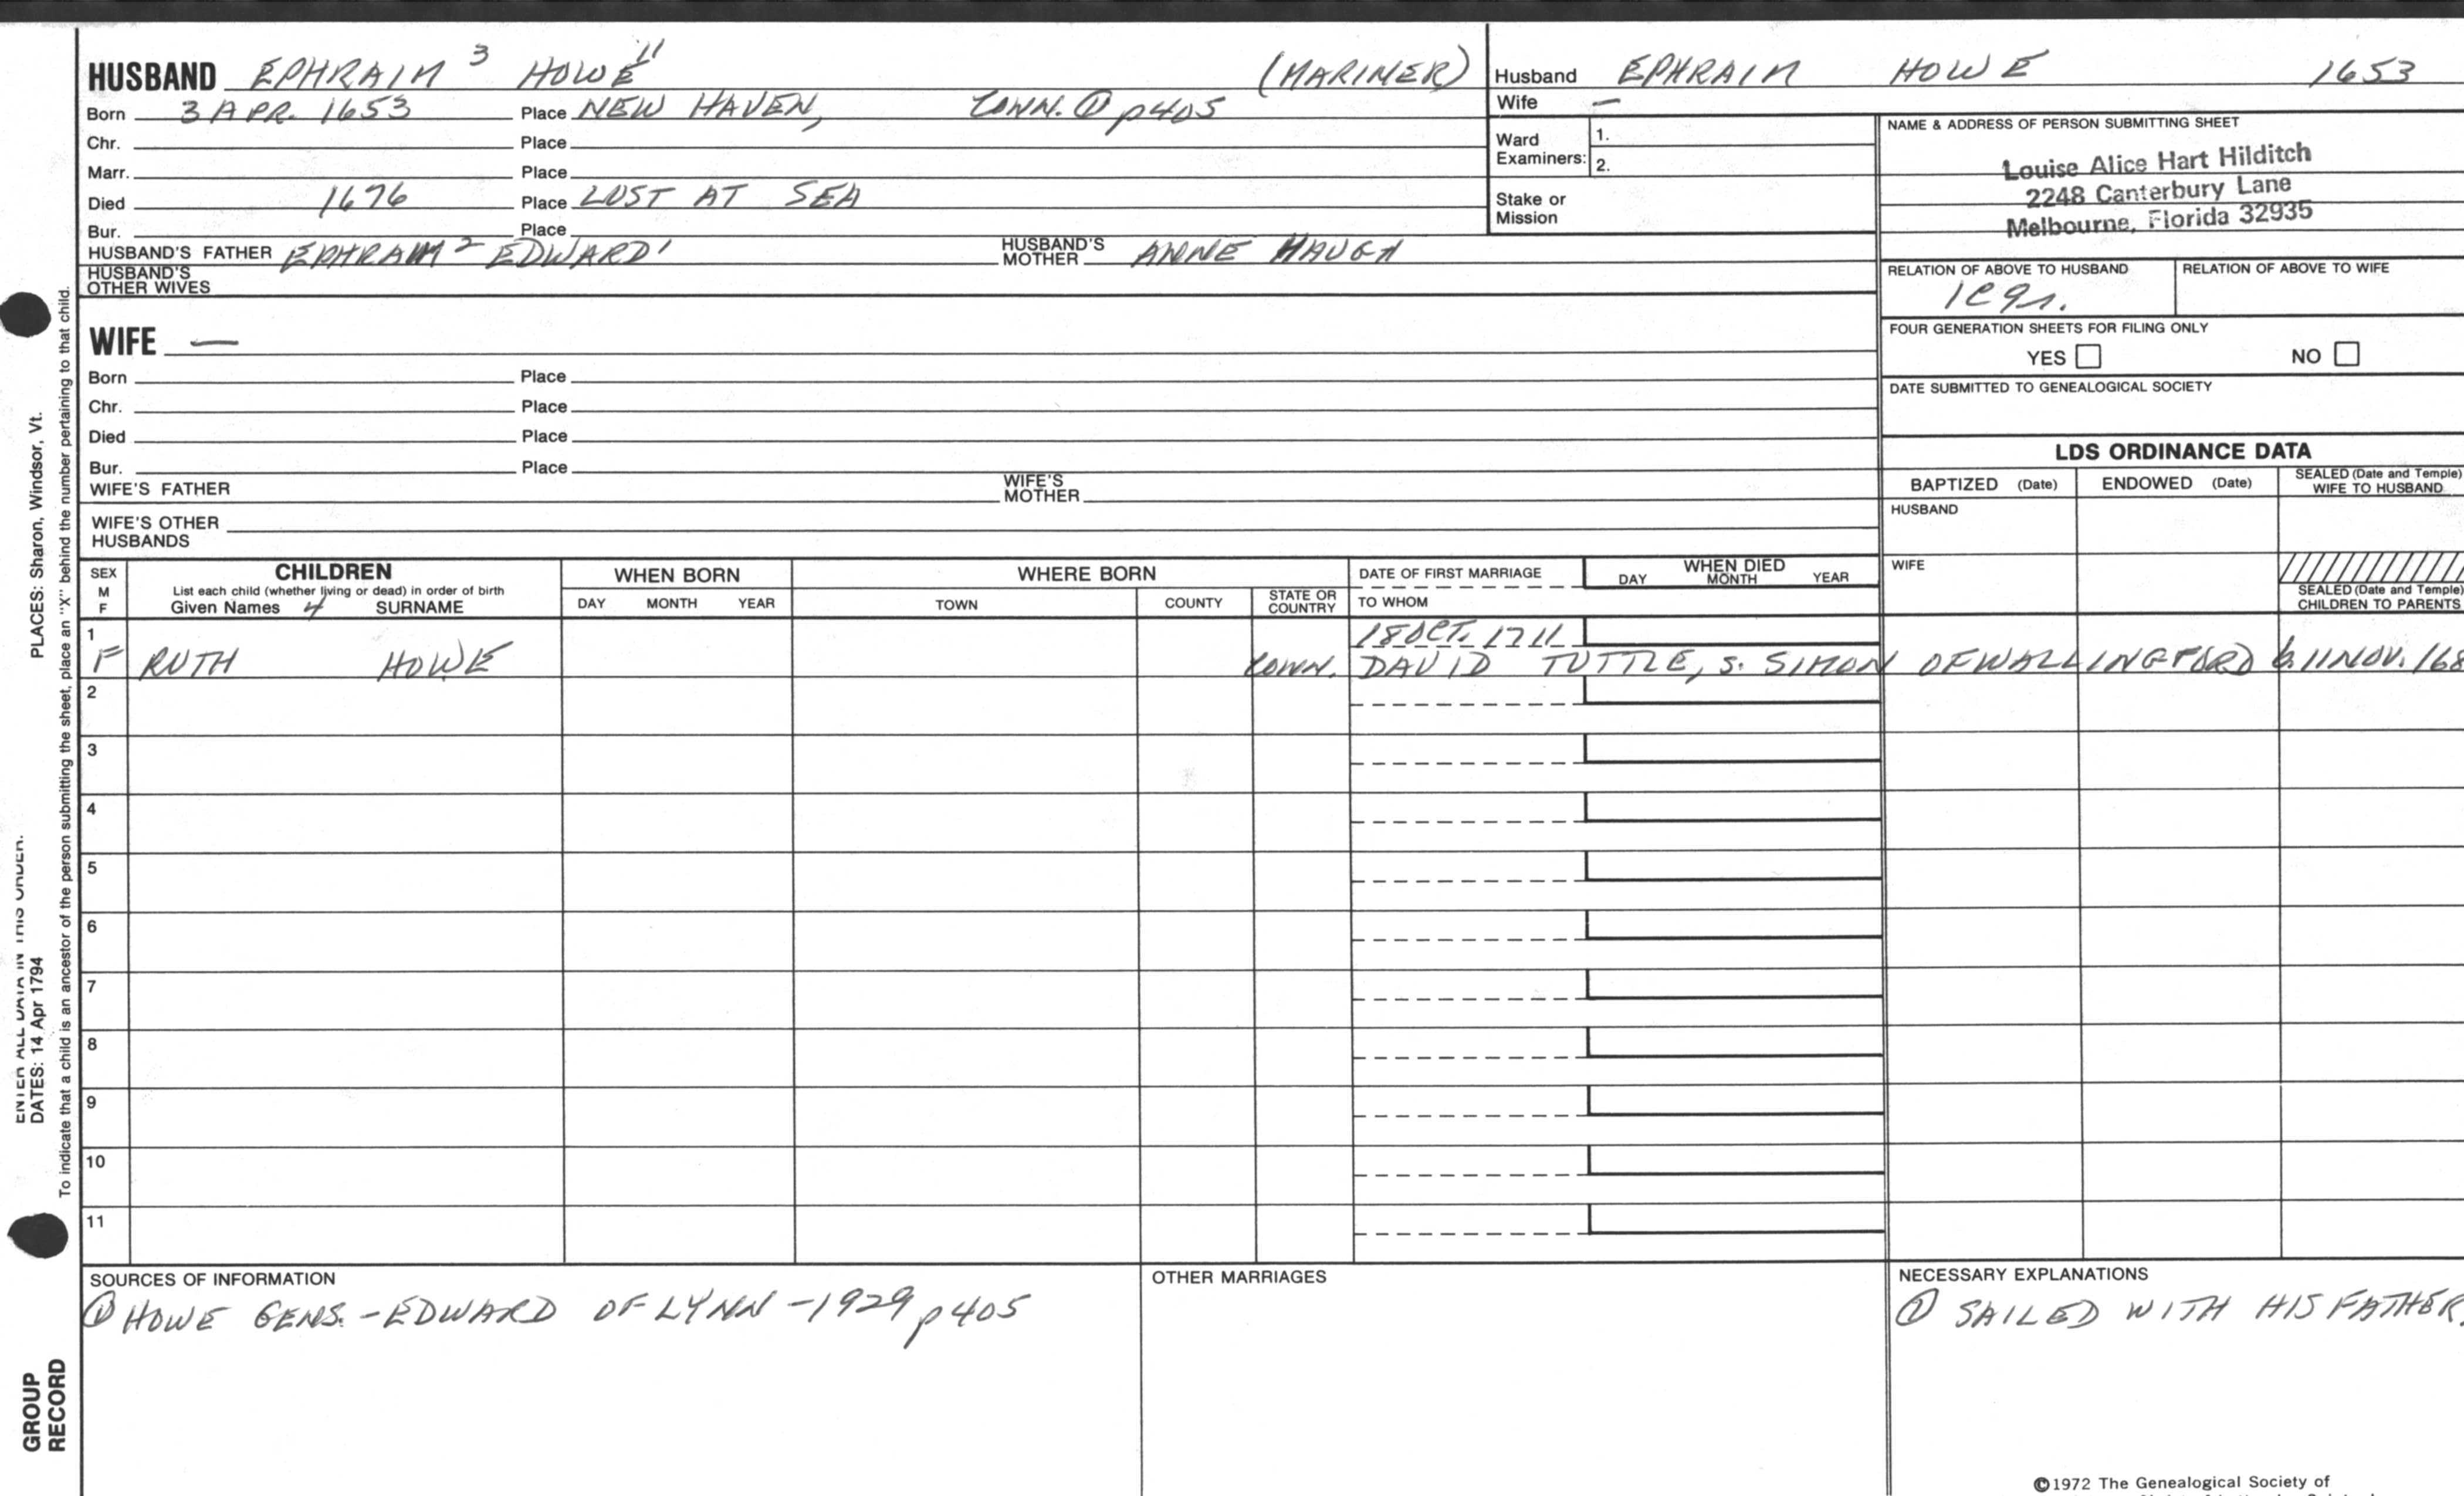 HUSBAND EPHRAIM 3 HOWE 11 (MARINER)
Born 3 APR. 1653 Place NEW HAVEN, CONN. ① p405
Chr. Place
Marr. Place
Died 1676 Place LOST AT SEA
Bur. Place
HUSBAND'S FATHER EPHRAIM 2 EDWARD 1 HUSBAND'S MOTHER ANNE HAUGH
HUSBAND'S OTHER WIVES
Husband EPHRAIM HOWE 1653
Wife —
Ward Examiners: 1.
2.
Stake or Mission
NAME & ADDRESS OF PERSON SUBMITTING SHEET
Louise Alice Hart Hilditch
2248 Canterbury Lane
Melbourne, Florida 32935
RELATION OF ABOVE TO HUSBAND RELATION OF ABOVE TO WIFE
FOUR GENERATION SHEETS FOR FILING ONLY
YES NO
DATE SUBMITTED TO GENEALOGICAL SOCIETY
WIFE —
Born Place
Chr. Place
Died Place
Bur. Place
WIFE'S FATHER WIFE'S MOTHER
WIFE'S OTHER HUSBANDS
LDS ORDINANCE DATA
BAPTIZED (Date) ENDOWED (Date) SEALED (Date and Temple) WIFE TO HUSBAND
HUSBAND
WIFE
SEALED (Date and Temple) CHILDREN TO PARENTS
SEX M F
CHILDREN
List each child (whether living or dead) in order of birth
Given Names 4 SURNAME
WHEN BORN
DAY MONTH YEAR
WHERE BORN
TOWN COUNTY STATE OR COUNTRY
DATE OF FIRST MARRIAGE
TO WHOM
WHEN DIED
DAY MONTH YEAR
1 18 OCT. 1711
F RUTH HOWE CONN. DAVID TUTTLE, S. SIMON OF WALLINGFORD b. 11 NOV. 168
2
3
4
5
6
7
8
9
10
11
SOURCES OF INFORMATION
① HOWE GENS. - EDWARD OF LYNN - 1929 p405
OTHER MARRIAGES
NECESSARY EXPLANATIONS
① SAILED WITH HIS FATHER.
©1972 The Genealogical Society of
ENTER ALL DATA IN THIS ORDER.
DATES: 14 Apr 1794
PLACES: Sharon, Windsor, Vt.
To indicate that a child is an ancestor of the person submitting the sheet, place an "X" behind the number pertaining to that child.
GROUP
RECORD